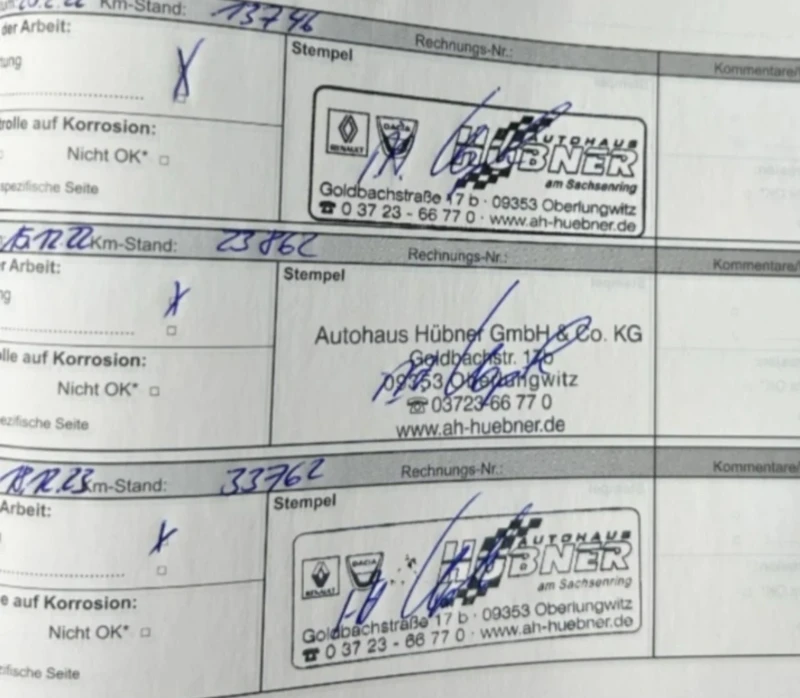 Km-Stand: 13746
der Arbeit:
Stempel
Rechnungs-Nr.:
Kommentare/
ung
RENAULT
DACIA
AUTOHAUS
HÜBNER
am Sachsenring
Goldbachstraße 17 b · 09353 Oberlungwitz
☎ 0 37 23 - 66 77 0 · www.ah-huebner.de
rolle auf Korrosion:
Nicht OK*
spezifische Seite
15.12.22 Km-Stand: 23862
Rechnungs-Nr.:
Kommentare/
r Arbeit:
Stempel
ng
Autohaus Hübner GmbH & Co. KG
Goldbachstr. 17b
09353 Oberlungwitz
☏ 03723-66 77 0
www.ah-huebner.de
lle auf Korrosion:
Nicht OK*
ezifische Seite
18.12.23 Km-Stand: 33762
Rechnungs-Nr.:
Kommentare/
Arbeit:
Stempel
RENAULT
DACIA
AUTOHAUS
HÜBNER
am Sachsenring
Goldbachstraße 17 b · 09353 Oberlungwitz
☎ 0 37 23 - 66 77 0 · www.ah-huebner.de
e auf Korrosion:
Nicht OK*
zifische Seite